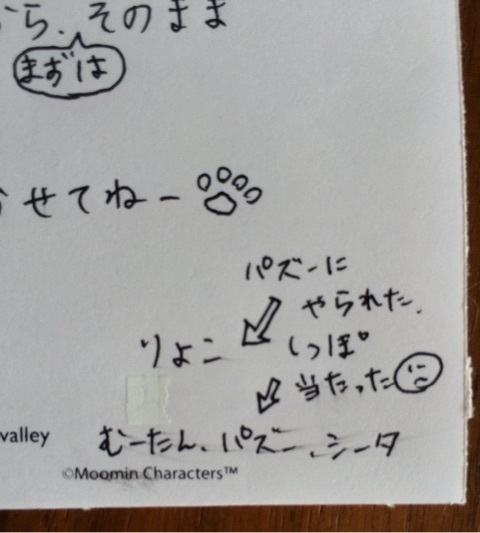 ら、そのまま
まずは
せてねー
パズーに
やられた.
しっぽ°
当たった
りょこ
valley
むーたん、パズー、シータ
©Moomin Characters™